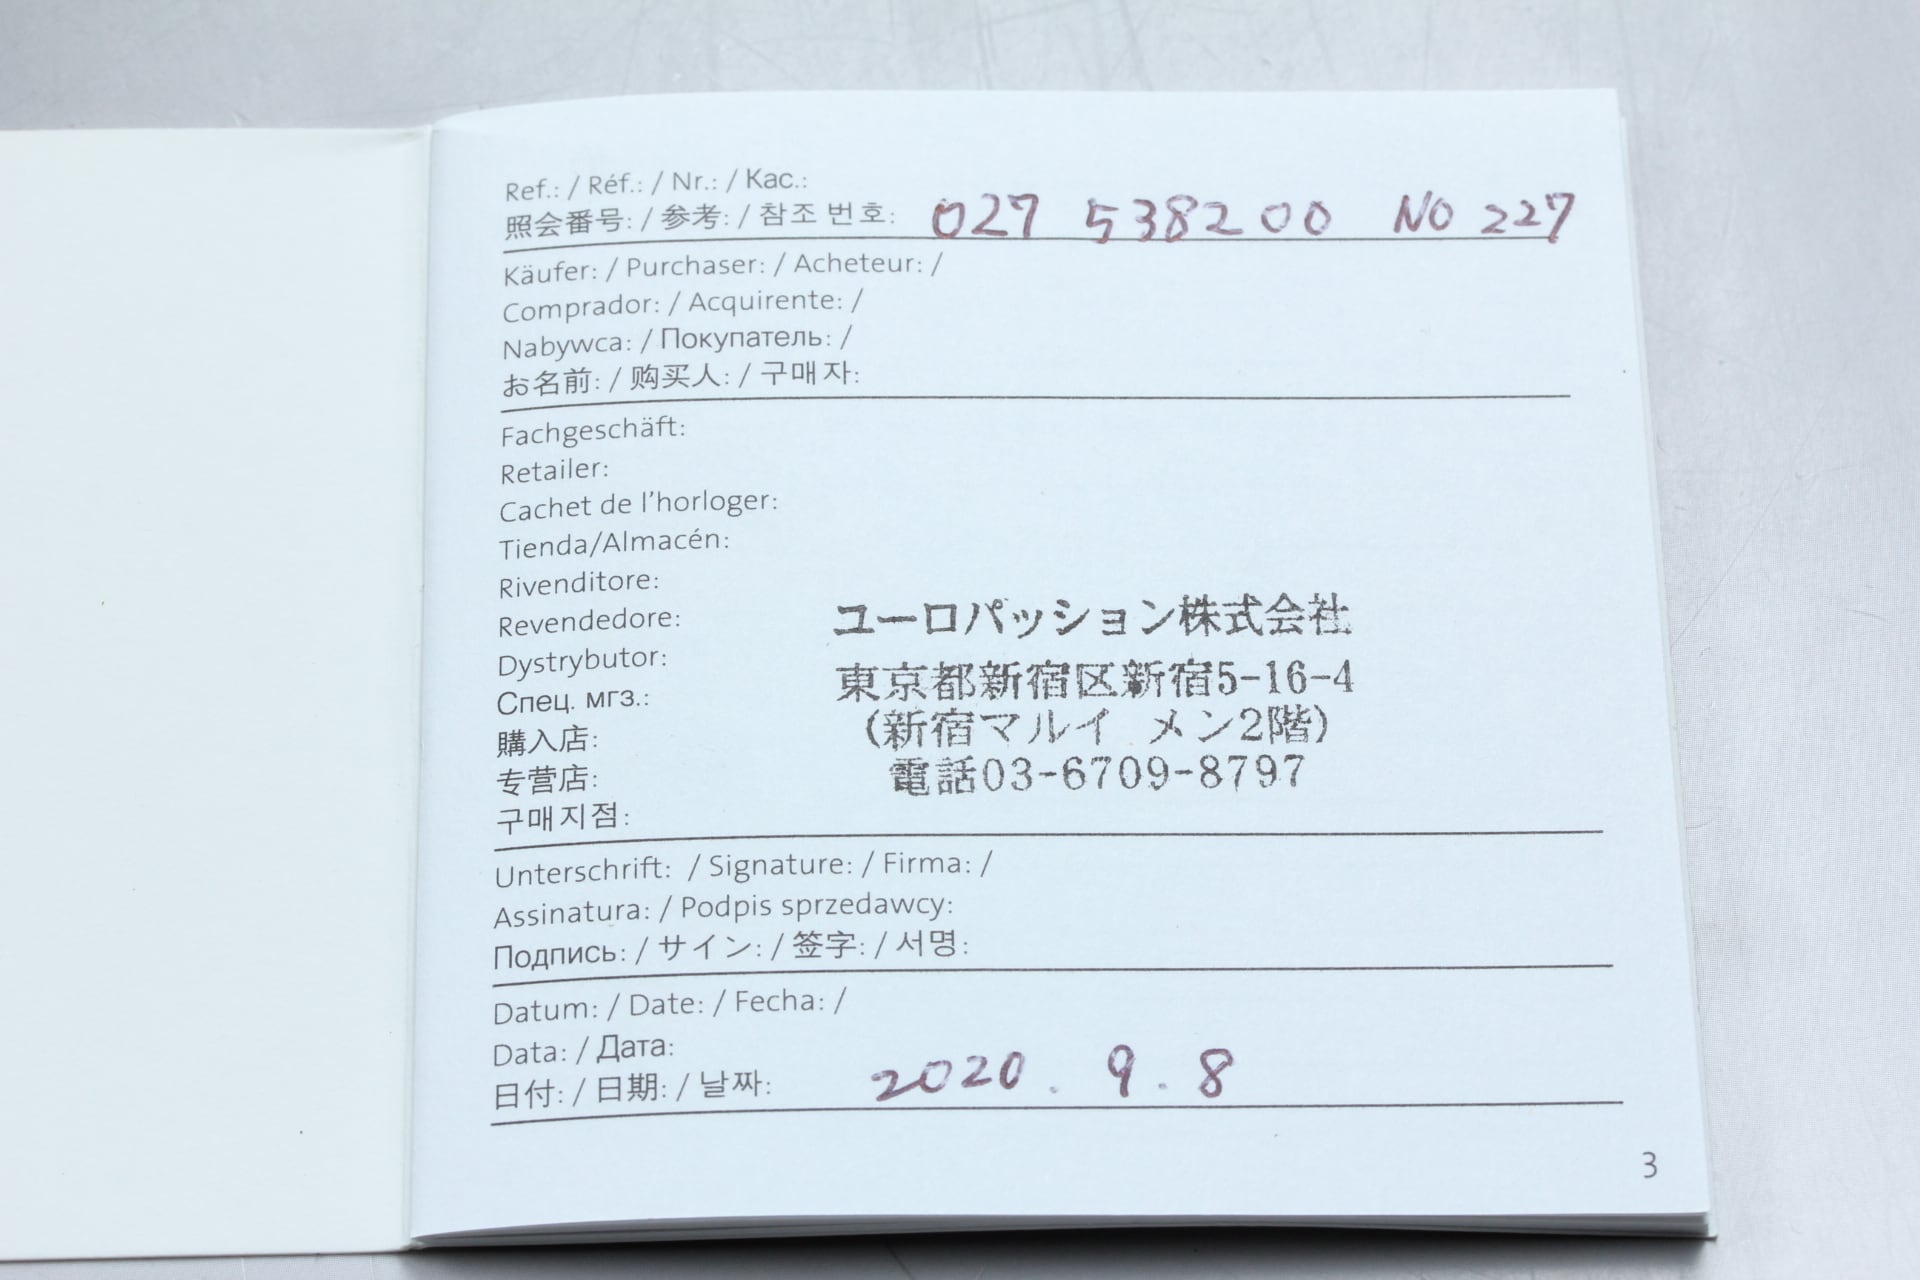 Ref.: / Réf.: / Nr.: / Kac.:
照会番号: / 参考: / 참조 번호: 027 538200 NO 227
Käufer: / Purchaser: / Acheteur: /
Comprador: / Acquirente: /
Nabywca: / Покупатель: /
お名前: / 购买人: / 구매자:
Fachgeschäft:
Retailer:
Cachet de l'horloger:
Tienda/Almacén:
Rivenditore:
Revendedore:
Dystrybutor:
Спец. мгз.:
購入店:
专营店:
구매지점:
ユーロパッション株式会社
東京都新宿区新宿5-16-4
(新宿マルイ メン2階)
電話03-6709-8797
Unterschrift: / Signature: / Firma: /
Assinatura: / Podpis sprzedawcy:
Подпись: / サイン: / 签字: / 서명:
Datum: / Date: / Fecha: /
Data: / Дата:
日付: / 日期: / 날짜: 2020 . 9 . 8
3